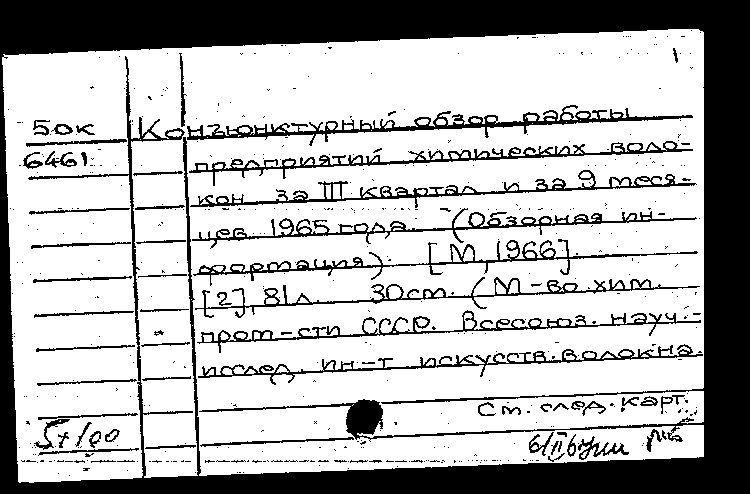 1
50к Конъюнктурный обзор работы
6461 предприятий химических воло-
кон за III квартал и за 9 меся-
цев 1965 года. (Обзорная ин-
формация). [М, 1966].
[2], 81л. 30см. (М-во хим.
пром-сти СССР. Всесоюз. науч.-
исслед. ин-т искусств. волокна.
См. след. карт.
5+/00